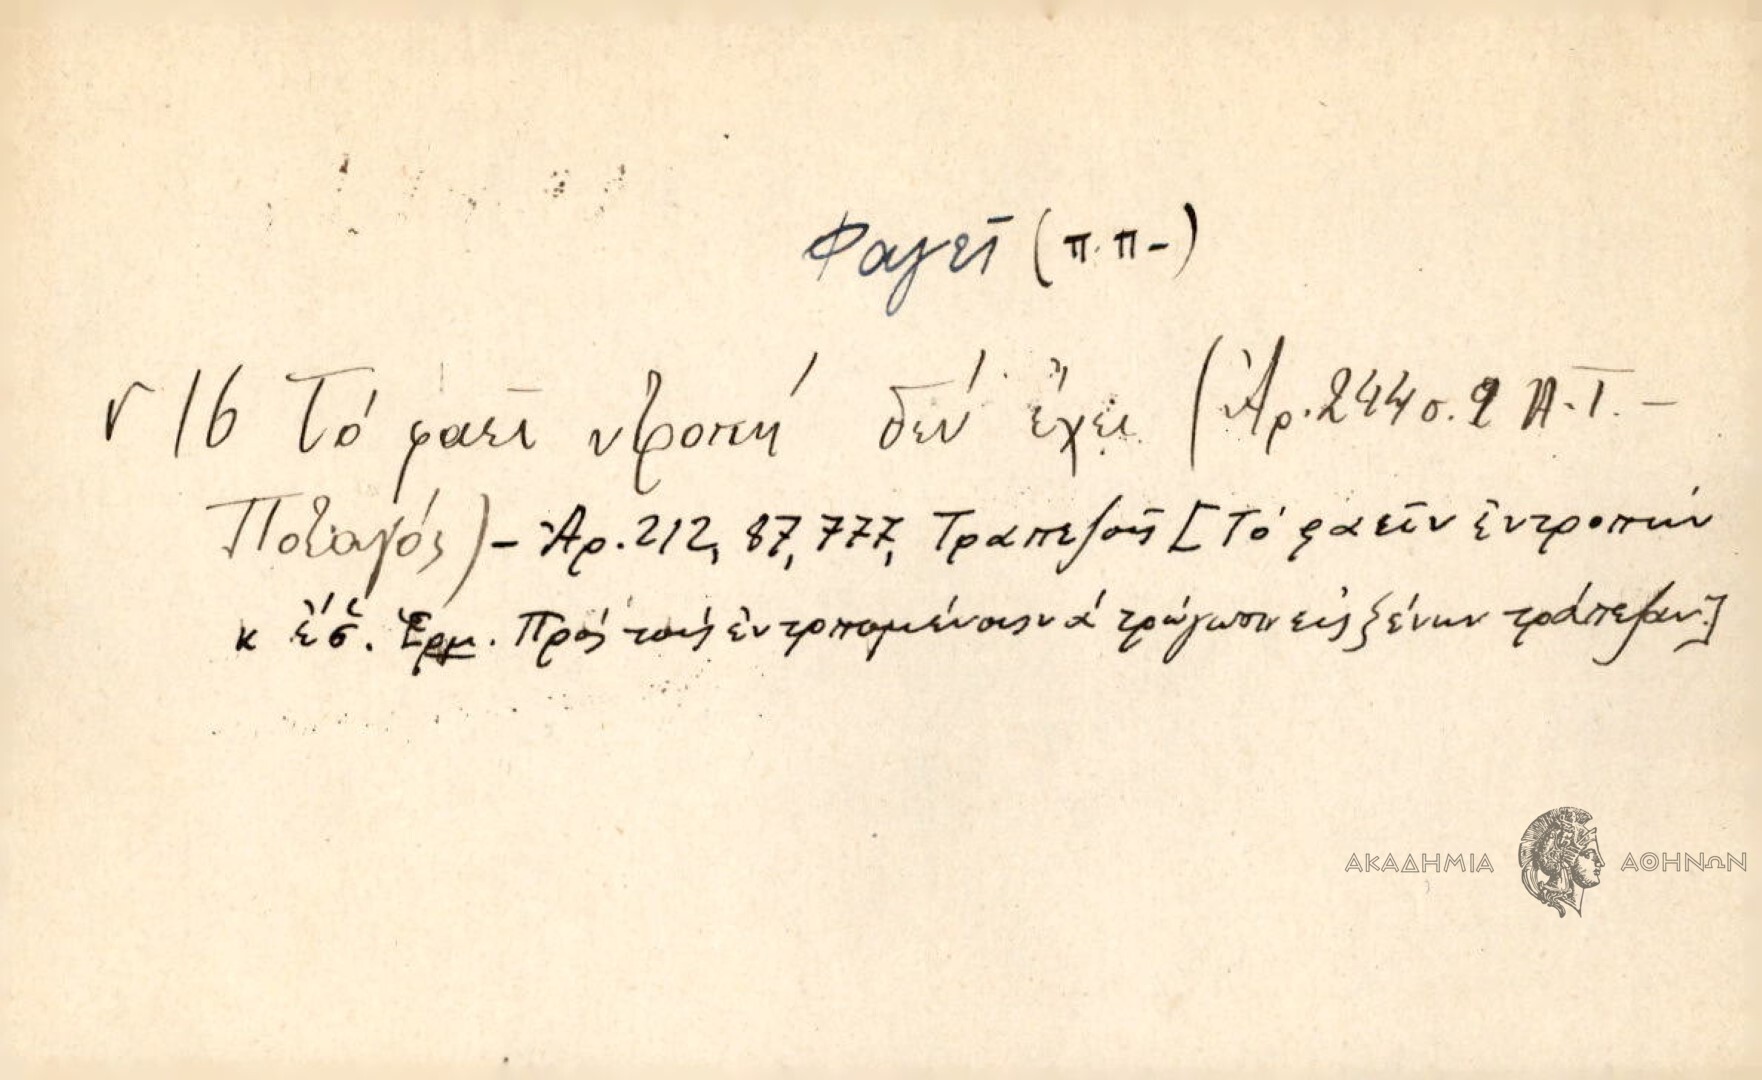 Φαγεῖ (π.π-)
16 Τό φαεῖ ντροπή δέν ἔχει (Ἀρ. 244 σ. 2 Π.Τ. –
Ποταγός) – Ἀρ. 212, 87, 777, Τραπεζοῦς [Τό φαεῖν ἐντροπήν
κ̓ ἔσ̌. Ἑρμ. Πρός τούς ἐντρπομένους νά τρώγωσιν εἰς ξένην τράπεζαν]
ΑΚΑΔΗΜΙΑ ΑΘΗΝΩΝ